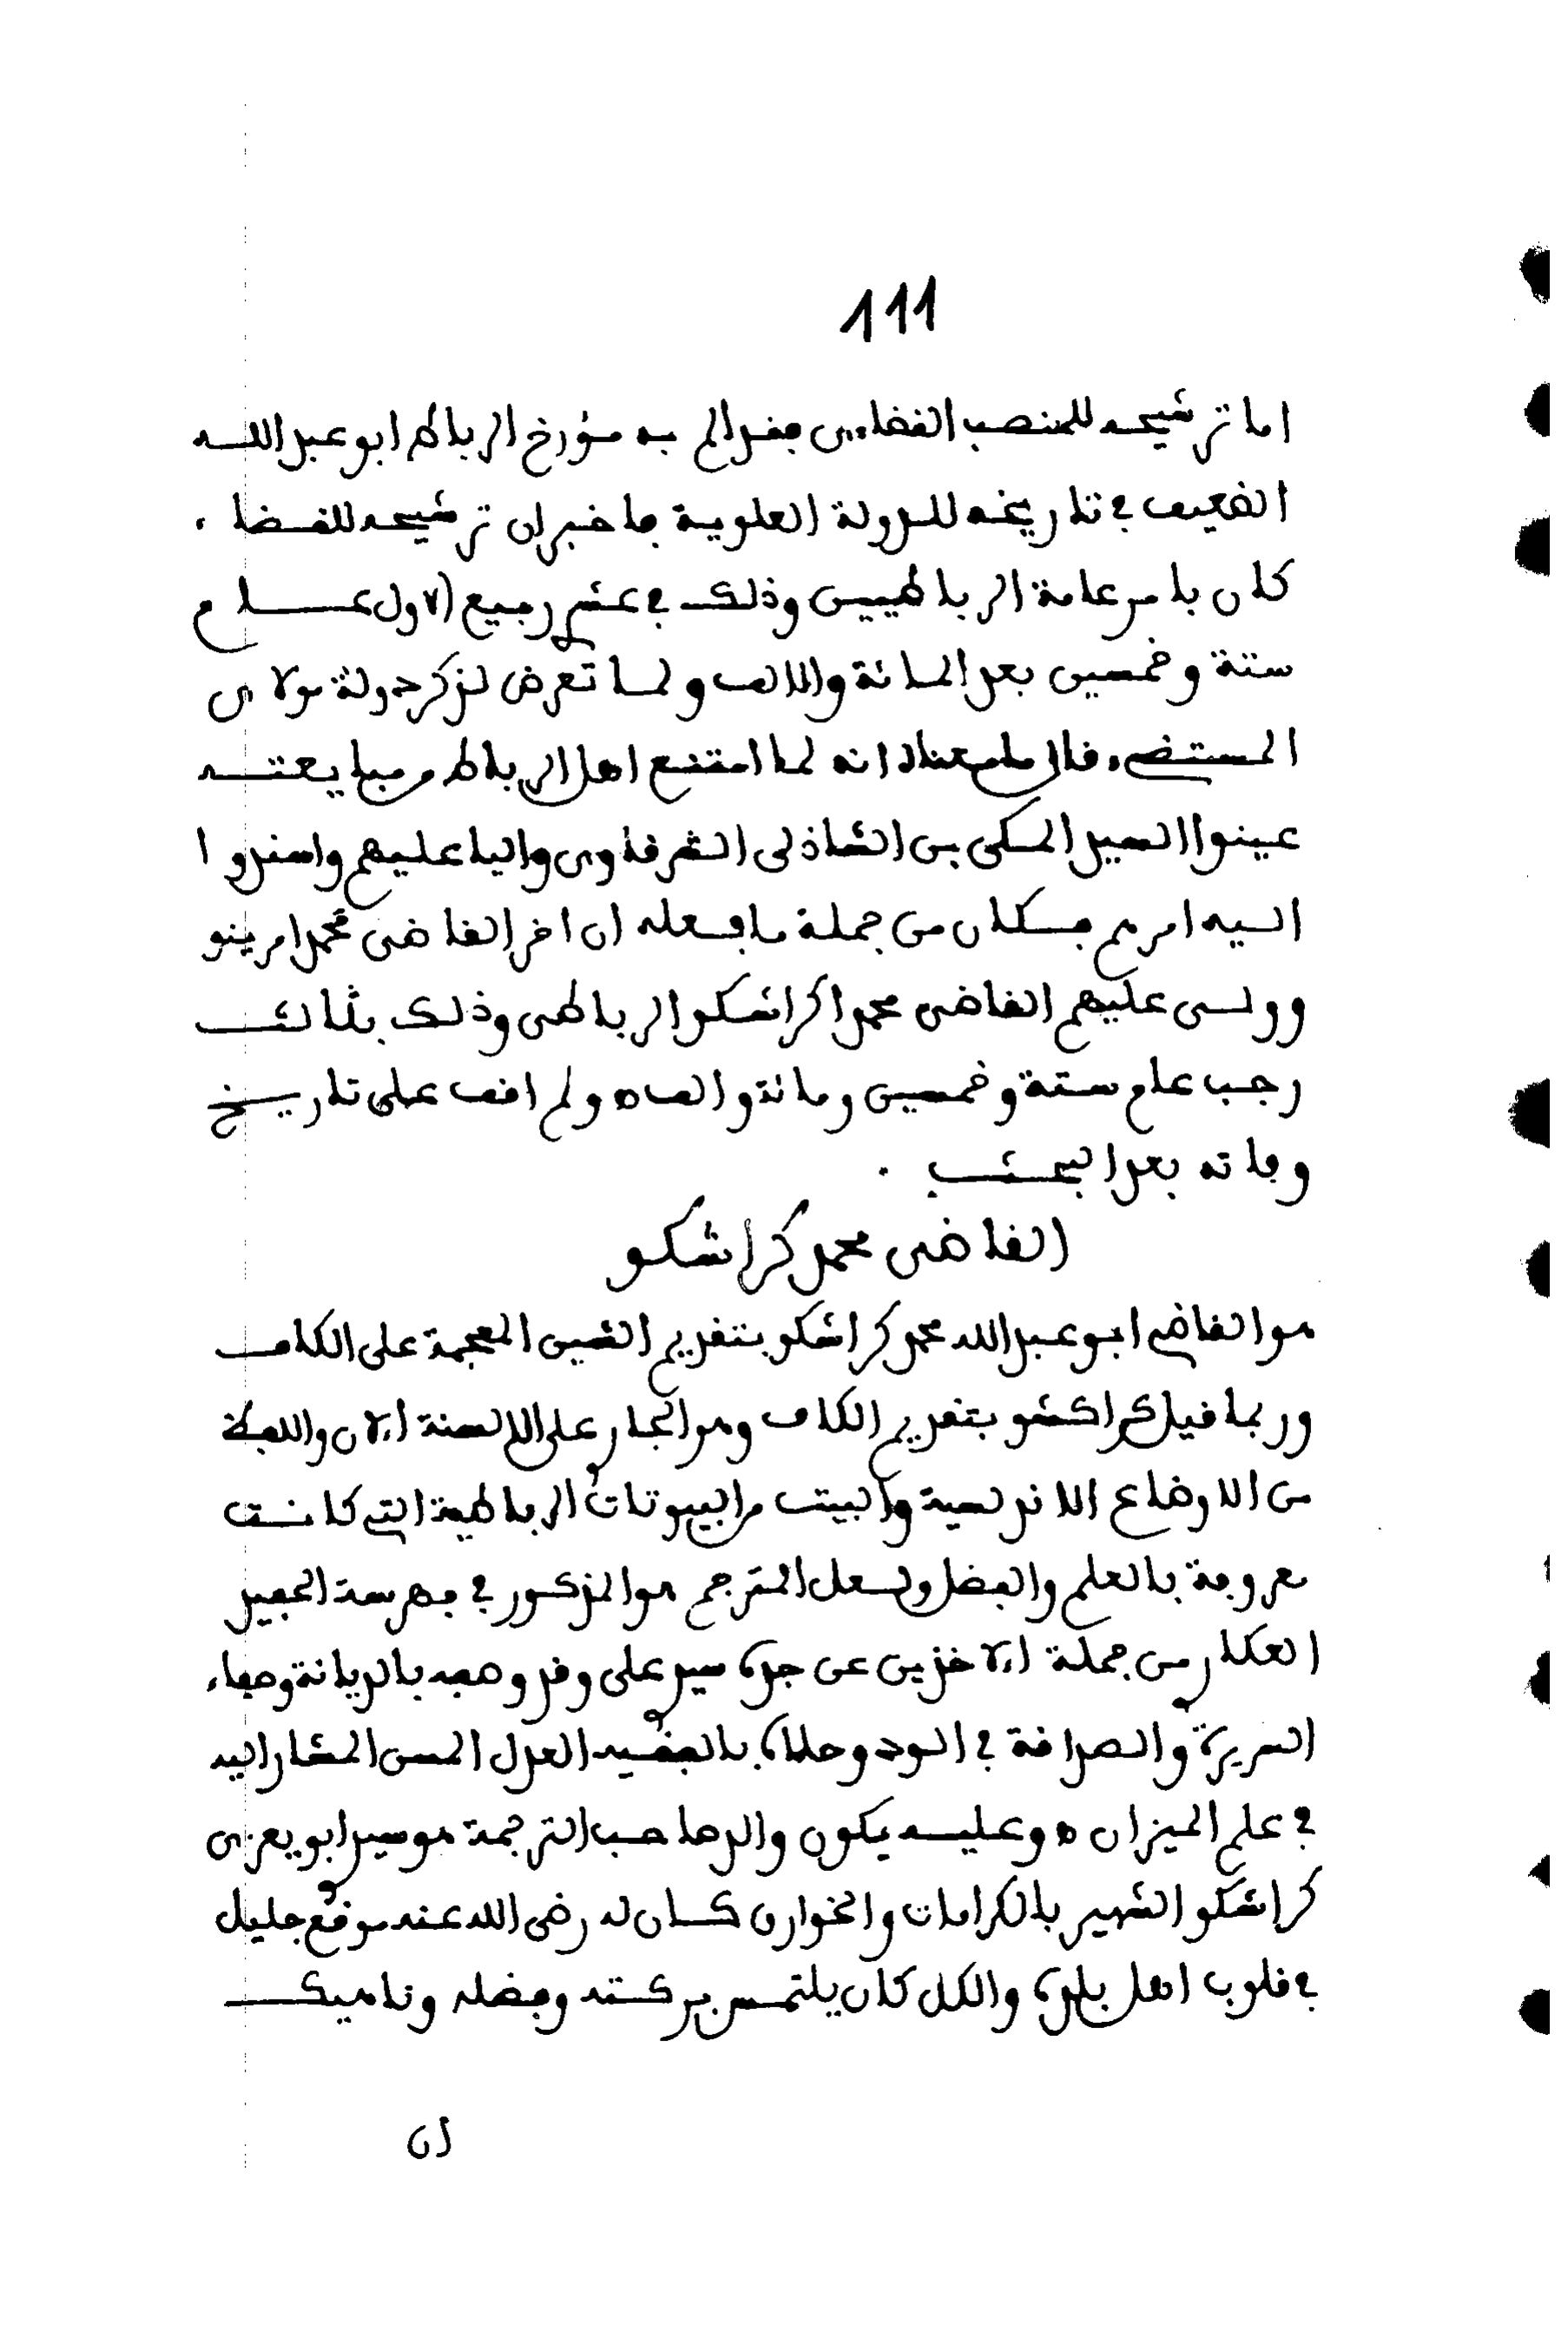 111
اما ترشيحه للمنصب القضاءى فقد الم به مؤرخ الرباط ابو عبد اللـه
الضعيف فى تاريخه للدولة العلوية فاخبر ان ترشيحه للقضاء
كان بامر عامة الرباطيين وذلك فى عشر ربيع الاول عـــام
ستة وخمسين بعد المائة والالف ولما تعرض لذكر دولة مولاى
المستضىء قال ما معناه انه لما امتنع اهل الرباط من مبايعتـه
عينوا السيد المكى بن الشاذلى الشرقاوى واليا عليهم واسندوا
اليه امرهم فكان من جملة ما فعله ان اخر القاضى محمد امرينو
وولى عليهم القاضى محمدا كراشكو الرباطى وذلك بثالث
رجب عام ستة وخمسين ومائة والف ه ولم اقف على تاريـخ
وفاته بعد البحث .
القاضى محمد كراشكو
هو القاضى ابو عبد الله محمد كراشكو بتقديم الشين المعجمة على الكاف
وربما قيل كراكشو بتقديم الكاف وهو الجار على الالسنة الان واللفظة
من الاوضاع الاندلسية والبيت من البيوتات الرباطية التى كانت
معروفة بالعلم والفضل ولعل المترجم هو المذكور فى فهرسة الحفيد
العكار من جملة الاخذين عن جده سيد على وقد وصفه بالديانة وصفاء
السريرة والصداقة فى الود وحلاه بالفقيه العدل المسن المشار اليه
فى علم الميزان ه وعليه يكون والد صاحب الترجمة هو سيد ابو يعزى
كراشكو الشهير بالكرامات والخوارق كان له رضى الله عنه موقع جليل
فى قلوب اهل بلده والكل كان يلتمس بركته وفضله وناهيك
ان